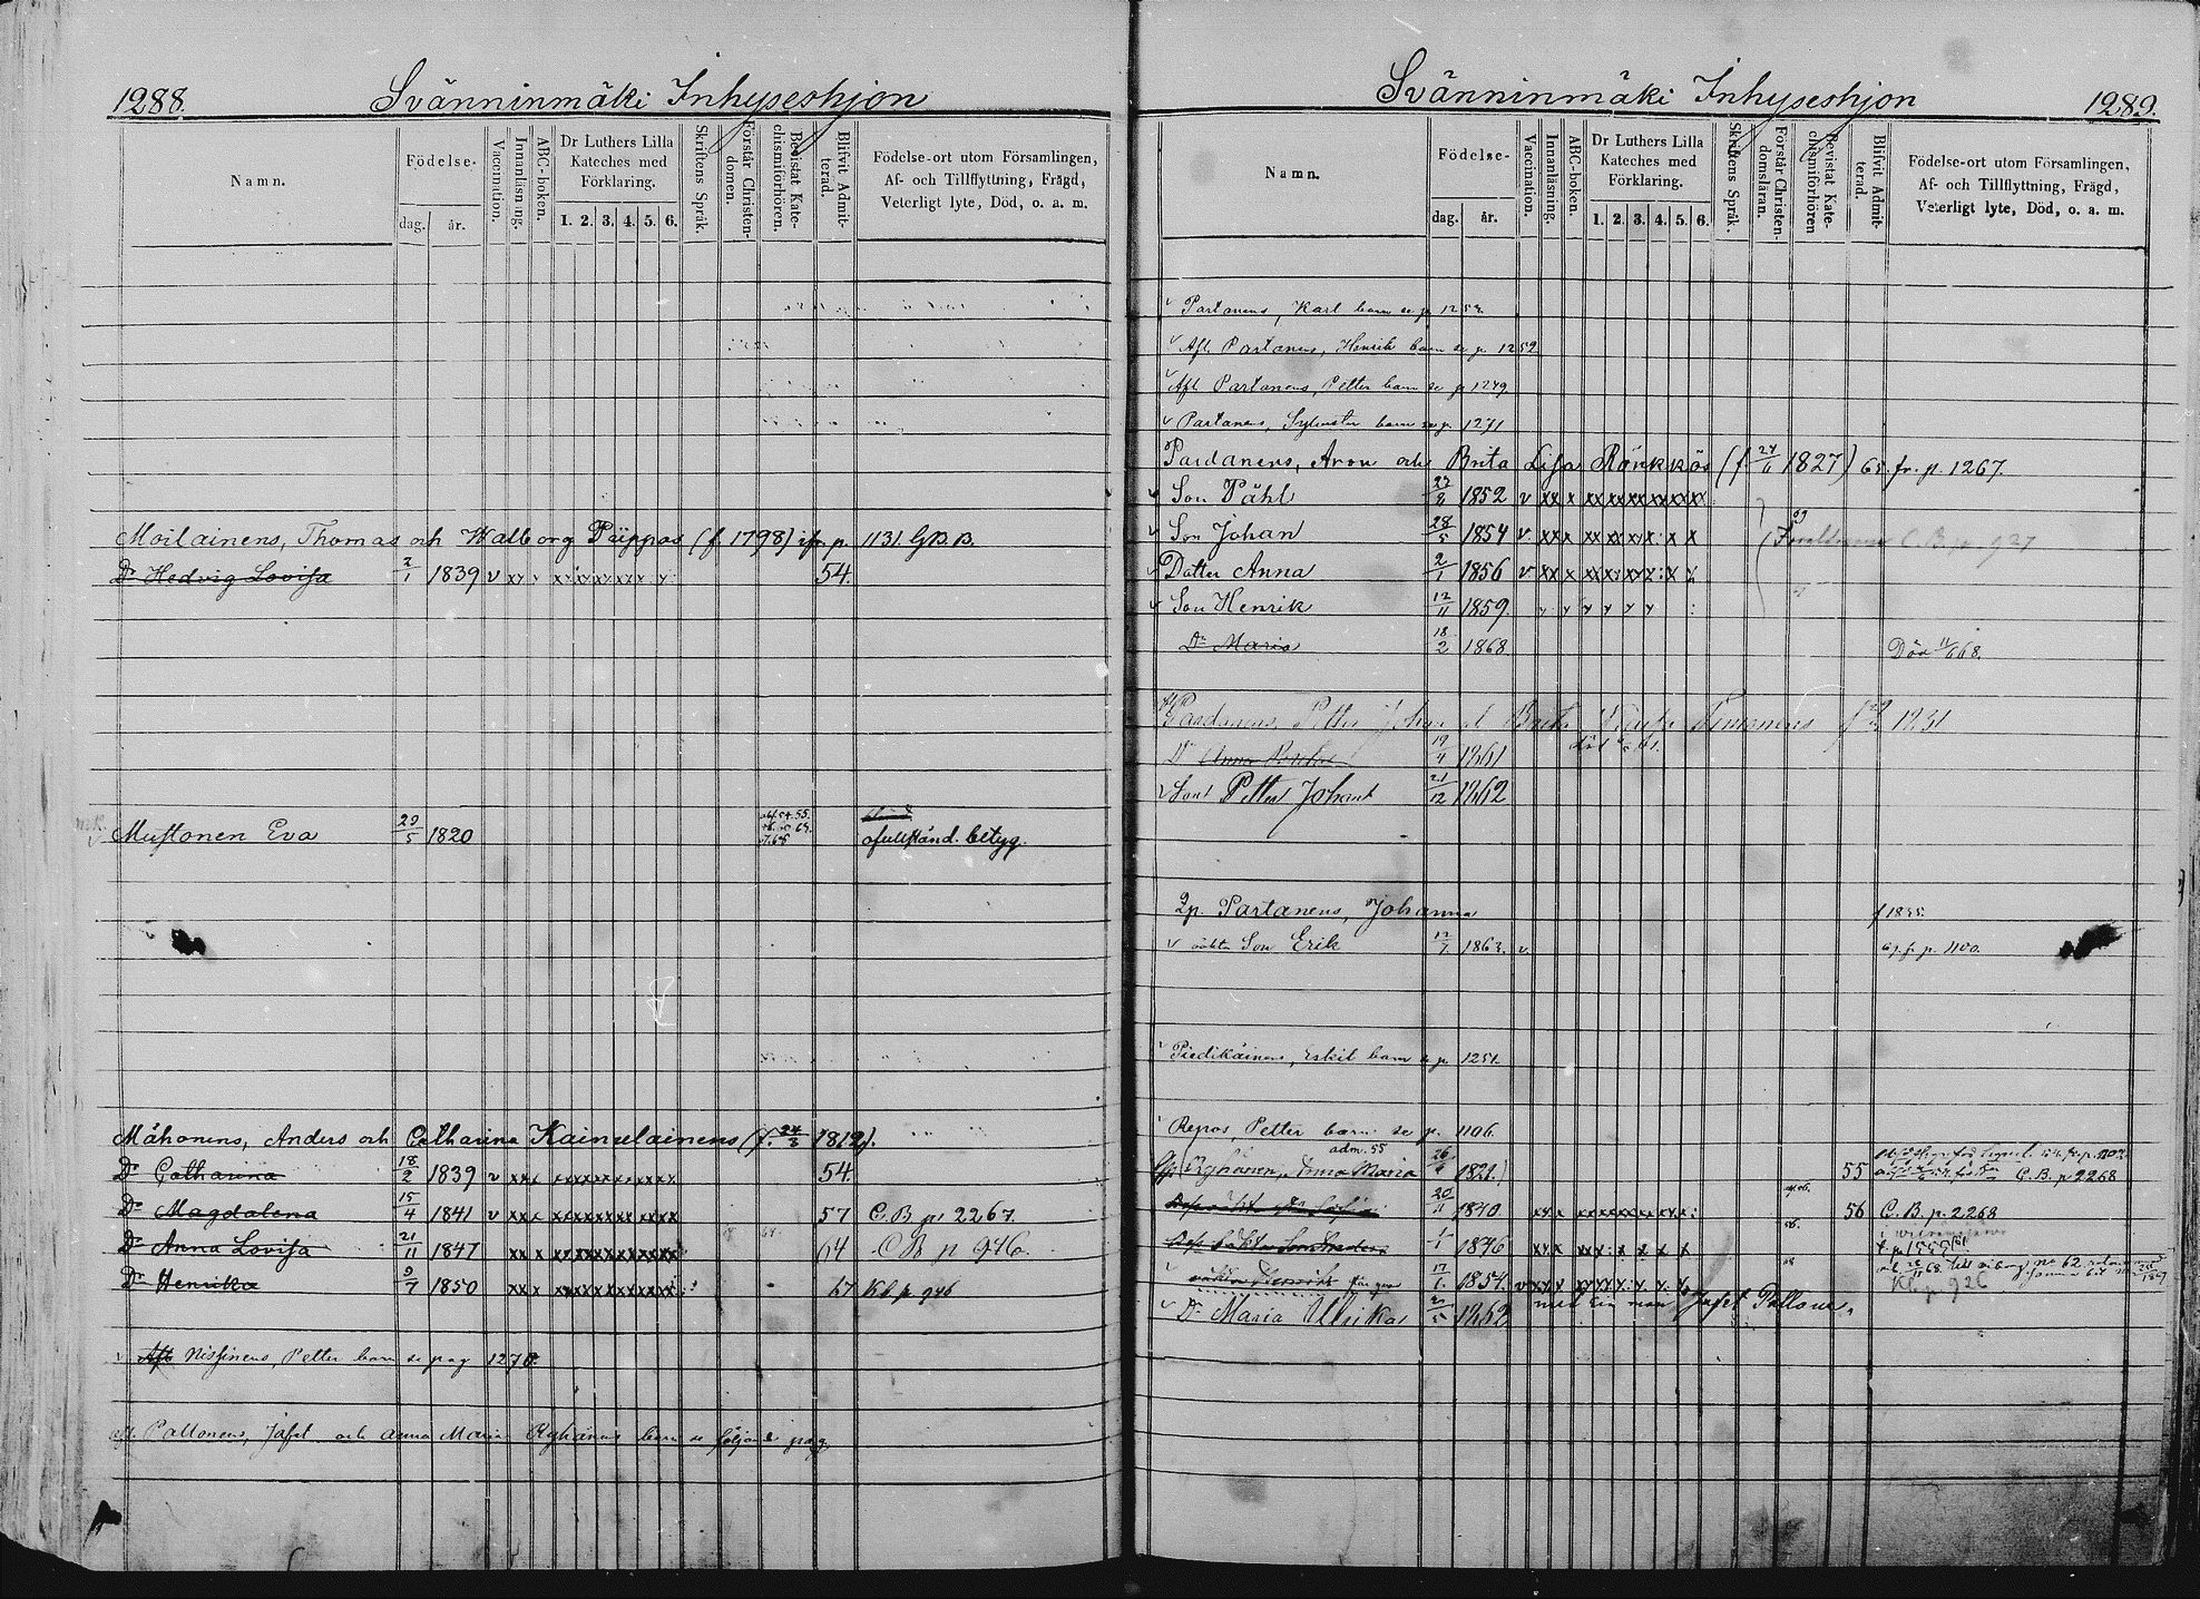 1288.
Svänninmäki Inhyseshjon
Namn.
Födelse-
dag.
år.
Vaccination.
Innanläsning.
ABC-boken.
Dr Luthers Lilla
Kateches med
Förklaring.
1. 2. 3. 4. 5. 6.
Skriftens Språk.
Förstår Christen-
domen.
Bevistat Kate-
chismiförhören.
Blifvit Admit-
terad.
Födelse-ort utom Församlingen,
Af- och Tillflyttning, Frägd,
Veterligt lyte, Död, o. a. m.
Moilainens, Thomas och Walborg Püppos (f. 1798) p. 1131. G.B.B.
Dr Hedvig Lovisa 2/1 1839 v 54.
Mustonen Eva 29/5 1820
ofullständ. betyg.
Mähonens, Anders och Catharina Kainulainens (f. 24/3 1812).
Dr Catharina 18/2 1839 v xxx xxxxxxxxxx 54.
Dr Magdalena 15/4 1841 v xxx xxxxxxxxxx 57 C.B. p. 2267.
Dr Anna Lovisa 21/11 1847 xx x xxxxxxxxxx 64 C B p 946.
Dr Henrika 9/7 1850 xx x xxxxxxxxxx 67 Kb p 946
v Afl Nissinens, Petter barn se pag 1270.
Afl. Paltonens, Jafet och Anna Maria Ryhänens barn se följande pag.
Svänninmäki Inhyseshjon
1289.
Namn.
Födelse-
dag.
år.
Vaccination.
Innanläsning.
ABC-boken.
Dr Luthers Lilla
Kateches med
Förklaring.
1. 2. 3. 4. 5. 6.
Skriftens Språk.
Förstår Christen-
domsläran.
Bevistat Kate-
chismiförhören
Blifvit Admit-
terad.
Födelse-ort utom Församlingen,
Af- och Tillflyttning, Frägd,
Veterligt lyte, Död, o. a. m.
v Partanens, Karl barn se p. 1252
v Afl. Partanens, Henrik barn se p. 1252
v Afl Partanens, Petter barn se p 1249
v Partanens, Sylvester barn se p. 1271
Pardanens, Aron och Brita Lisa Rönkkös (f. 24/11 1827) 65 fr. p. 1267.
v Son Påhl 27/8 1852 v xx x xx xx xx xx xx xx
v Son Johan 28/5 1854 v xx x xx xx xx x x x
C.B. p. 927
v Datter Anna 2/1 1856 v xx x xx xx xx x x
v Son Henrik 12/11 1859.
Dr Maria 18/2 1868 Död 11/6 68.
Afl Pardanens, Petter Johan och Brita 1831
Dr Anna 19/4 1861
v Son Petter Johan 21/12 1862
Qp. Partanens, Johanna f 1835.
v oäkta Son Erik 12/7 1863. v. 67 f. p. 1100.
v Piedikäinens, Eskil barn se p. 1251.
v Repos, Petter barn se p. 1106.
adm. 55
Qp (Ryhänen, Anna Maria 26/4 1821.) 55
C.B. p 2268
20/11 1840 56 C.B. p. 2268
1/1 1846
17/6 1854. v
Kb p. 926
v Dr Maria Ulrika 2/5 1862 med sin man Jafet Paltonen